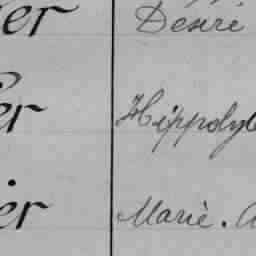 er Désiré
er Hippolyte
er Marie. A